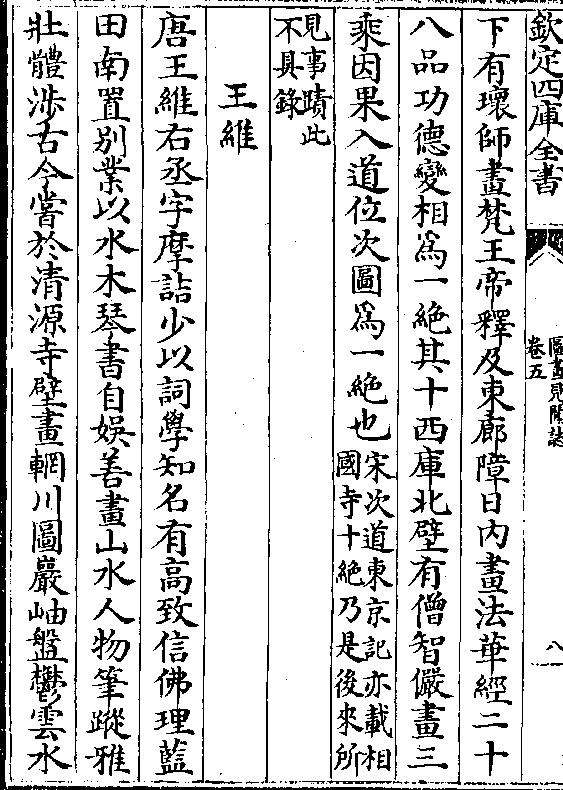 欽定四庫全書
圖畫見聞誌
卷五
八
下有瓌師畫梵王帝釋及東廊障日内畫法華經二十
八品功德變相爲一絶其十西庫北壁有僧智儼畫三
乘因果入道位次圖爲一絶也宋次道東京記亦載相
國寺十絶乃是後來所
見事蹟此
不具錄
王維
唐王維右丞字摩詰少以詞學知名有高致信佛理藍
田南置别業以水木琴書自娛善畫山水人物筆蹤雅
壯體涉古今嘗於清源寺壁畫輞川圖巖岫盤鬱雲水